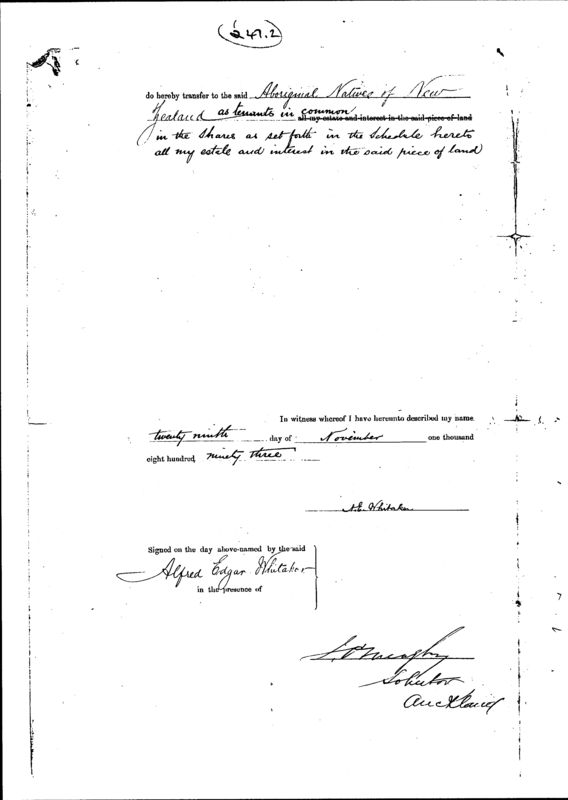 247.2
do hereby transfer to the said Aboriginal Natives of New
Zealand as tenants in common all my estate and interest in the said piece of land
in the Shares as set forth in the Schedule hereto
all my estate and interest in the said piece of land
In witness whereof I have hereunto described my name
twenty ninth day of November one thousand
eight hundred ninety three
A.E. Whitaker
Signed on the day above-named by the said
Alfred Edgar Whitaker
in the presence of
Solicitor
Auckland